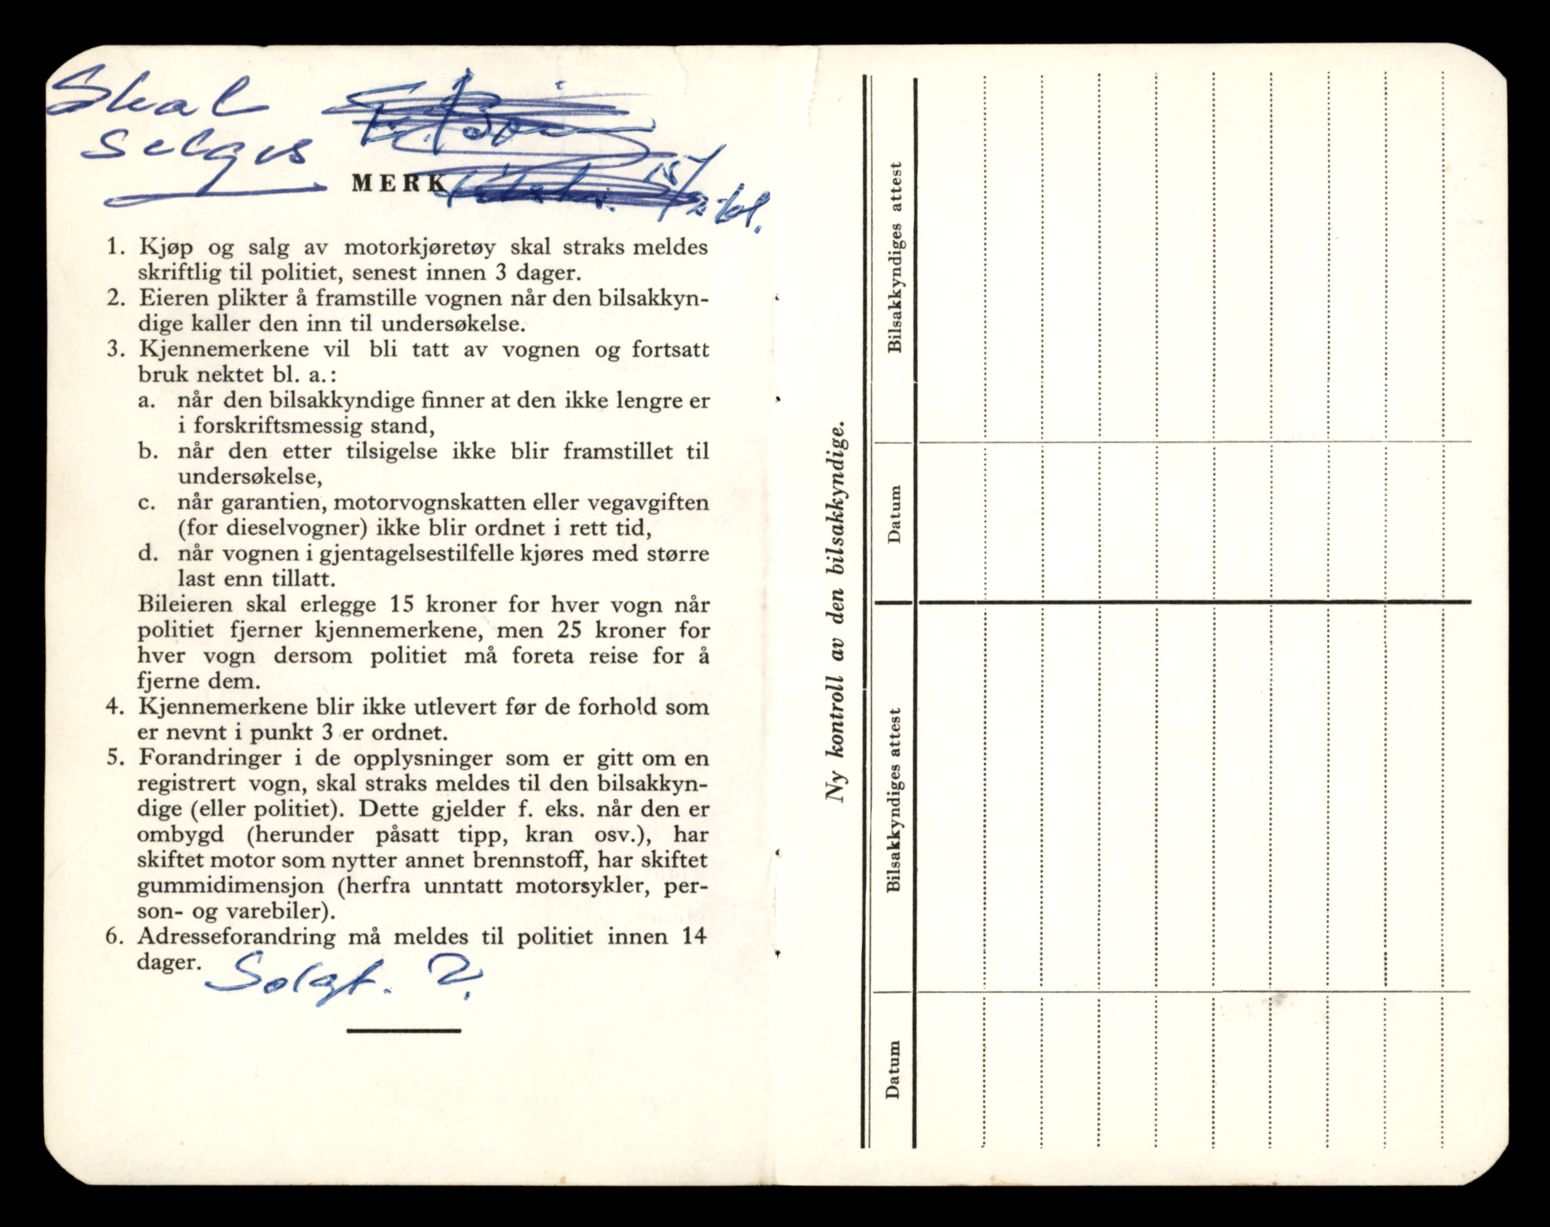 Skal
selges
15/
MERK
1. Kjøp og salg av motorkjøretøy skal straks meldes
skriftlig til politiet, senest innen 3 dager.
2. Eieren plikter å framstille vognen når den bilsakkyn-
dige kaller den inn til undersøkelse.
3. Kjennemerkene vil bli tatt av vognen og fortsatt
bruk nektet bl. a.:
a. når den bilsakkyndige finner at den ikke lengre er
i forskriftsmessig stand,
b. når den etter tilsigelse ikke blir framstillet til
undersøkelse,
c. når garantien, motorvognskatten eller vegavgiften
(for dieselvogner) ikke blir ordnet i rett tid,
d. når vognen i gjentagelsestilfelle kjøres med større
last enn tillatt.
Bileieren skal erlegge 15 kroner for hver vogn når
politiet fjerner kjennemerkene, men 25 kroner for
hver vogn dersom politiet må foreta reise for å
fjerne dem.
4. Kjennemerkene blir ikke utlevert før de forhold som
er nevnt i punkt 3 er ordnet.
5. Forandringer i de opplysninger som er gitt om en
registrert vogn, skal straks meldes til den bilsakkyn-
dige (eller politiet). Dette gjelder f. eks. når den er
ombygd (herunder påsatt tipp, kran osv.), har
skiftet motor som nytter annet brennstoff, har skiftet
gummidimensjon (herfra unntatt motorsykler, per-
son- og varebiler).
6. Adresseforandring må meldes til politiet innen 14
dager.
Solgt. ?
Ny kontroll av den bilsakkyndige.
Datum
Bilsakkyndiges attest
Datum
Bilsakkyndiges attest